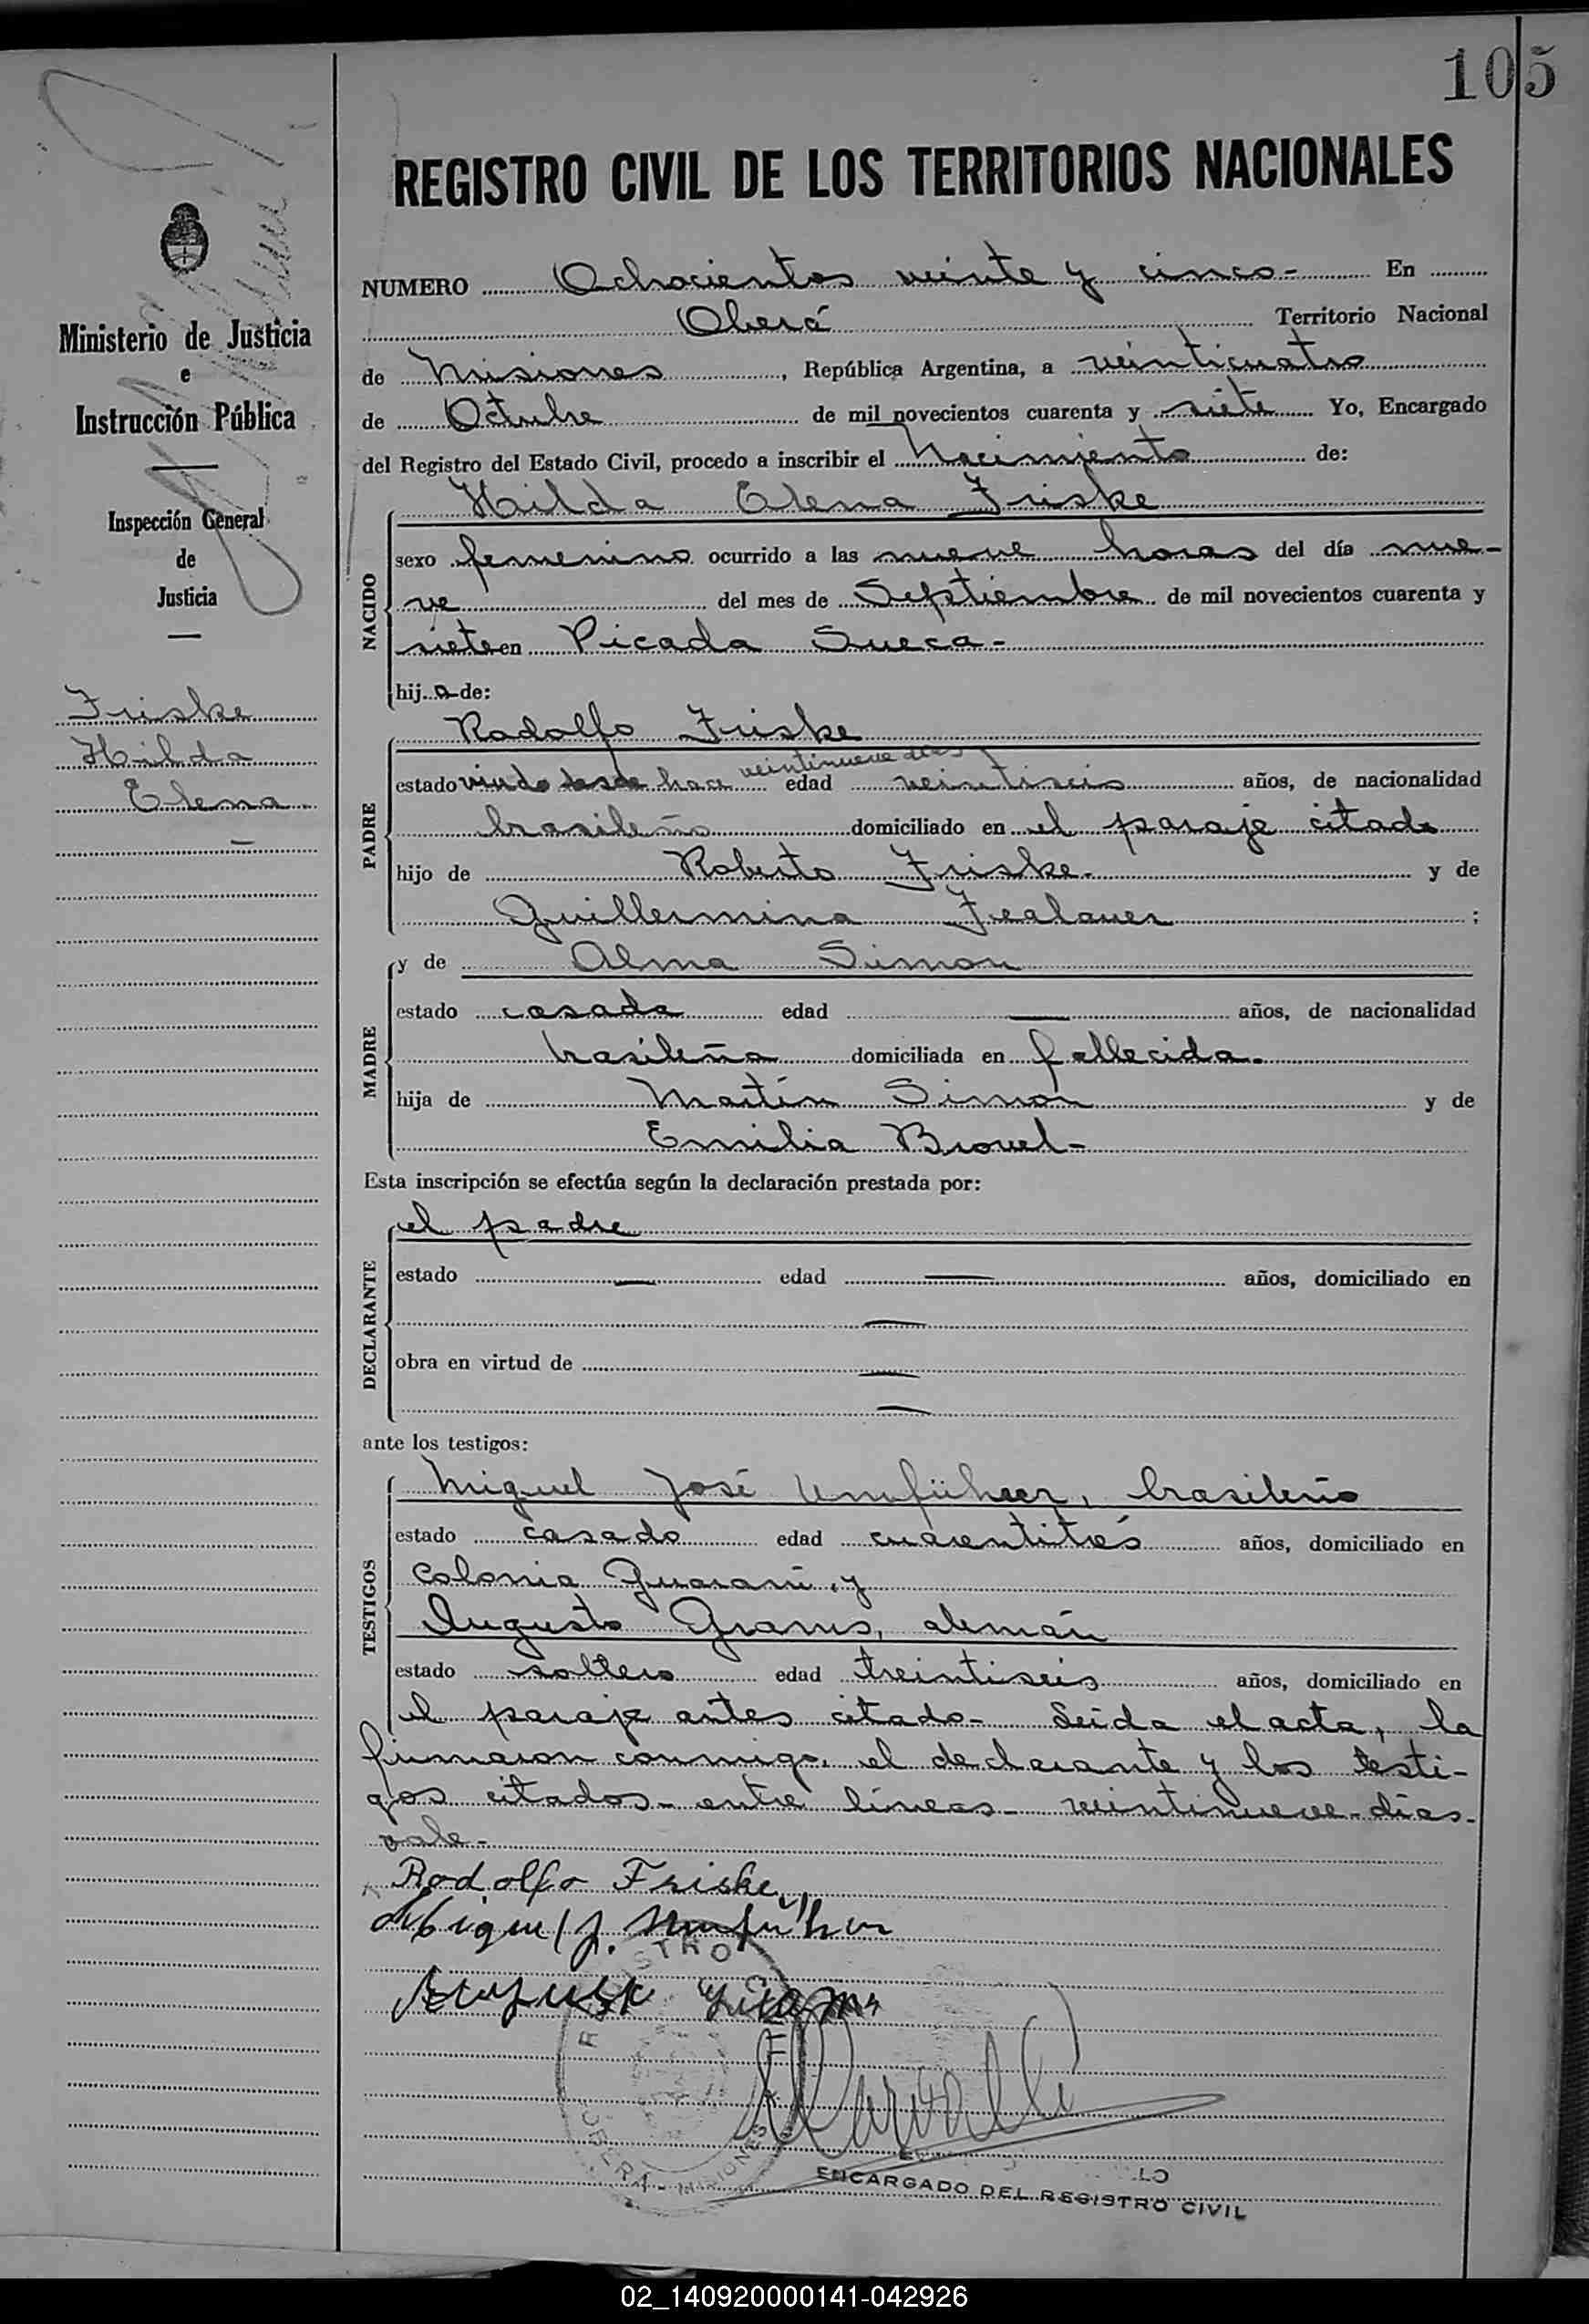 105
REGISTRO CIVIL DE LOS TERRITORIOS NACIONALES
NUMERO Ochocientos veinte y cinco- En
Oberá Territorio Nacional
de Misiones, República Argentina, a veinticuatro
de Octubre de mil novecientos cuarenta y siete Yo, Encargado
del Registro del Estado Civil, procedo a inscribir el Nacimiento de:
Hilda Elena Friske
NACIDO
sexo femenino ocurrido a las nueve horas del día nue-
ve del mes de Septiembre de mil novecientos cuarenta y
siete en Picada Sueca-
hij a de:
Rodolfo Friske
PADRE
veintinueve días
estado viudo desde hace edad veintiseis años, de nacionalidad
brasileño domiciliado en el paraje citado
hijo de Roberto Friske- y de
Guillermina ;
MADRE
y de Alma Simon
estado casada edad — años, de nacionalidad
brasileña domiciliada en fallecida.
hija de Martín Simon y de
Emilia
Esta inscripción se efectúa según la declaración prestada por:
DECLARANTE
el padre
estado — edad — años, domiciliado en
—
obra en virtud de —
—
ante los testigos:
TESTIGOS
Miguel José Umfüherr, brasileño
estado casado edad cuarentitrés años, domiciliado en
Colonia Guaraní, y
Augusto Grams, alemán
estado soltero edad treintiseis años, domiciliado en
el paraje antes citado- Leida el acta, la
firmaron conmigo, el declarante y los testi-
gos citados- entre líneas- veintinueve-días-
vale-
Rodolfo Friske
Miguel J.
ENCARGADO DEL REGISTRO CIVIL
Ministerio de Justicia
e
Instrucción Pública
Inspección General
de
Justicia
Friske
Hilda
Elena
02_140920000141-042926